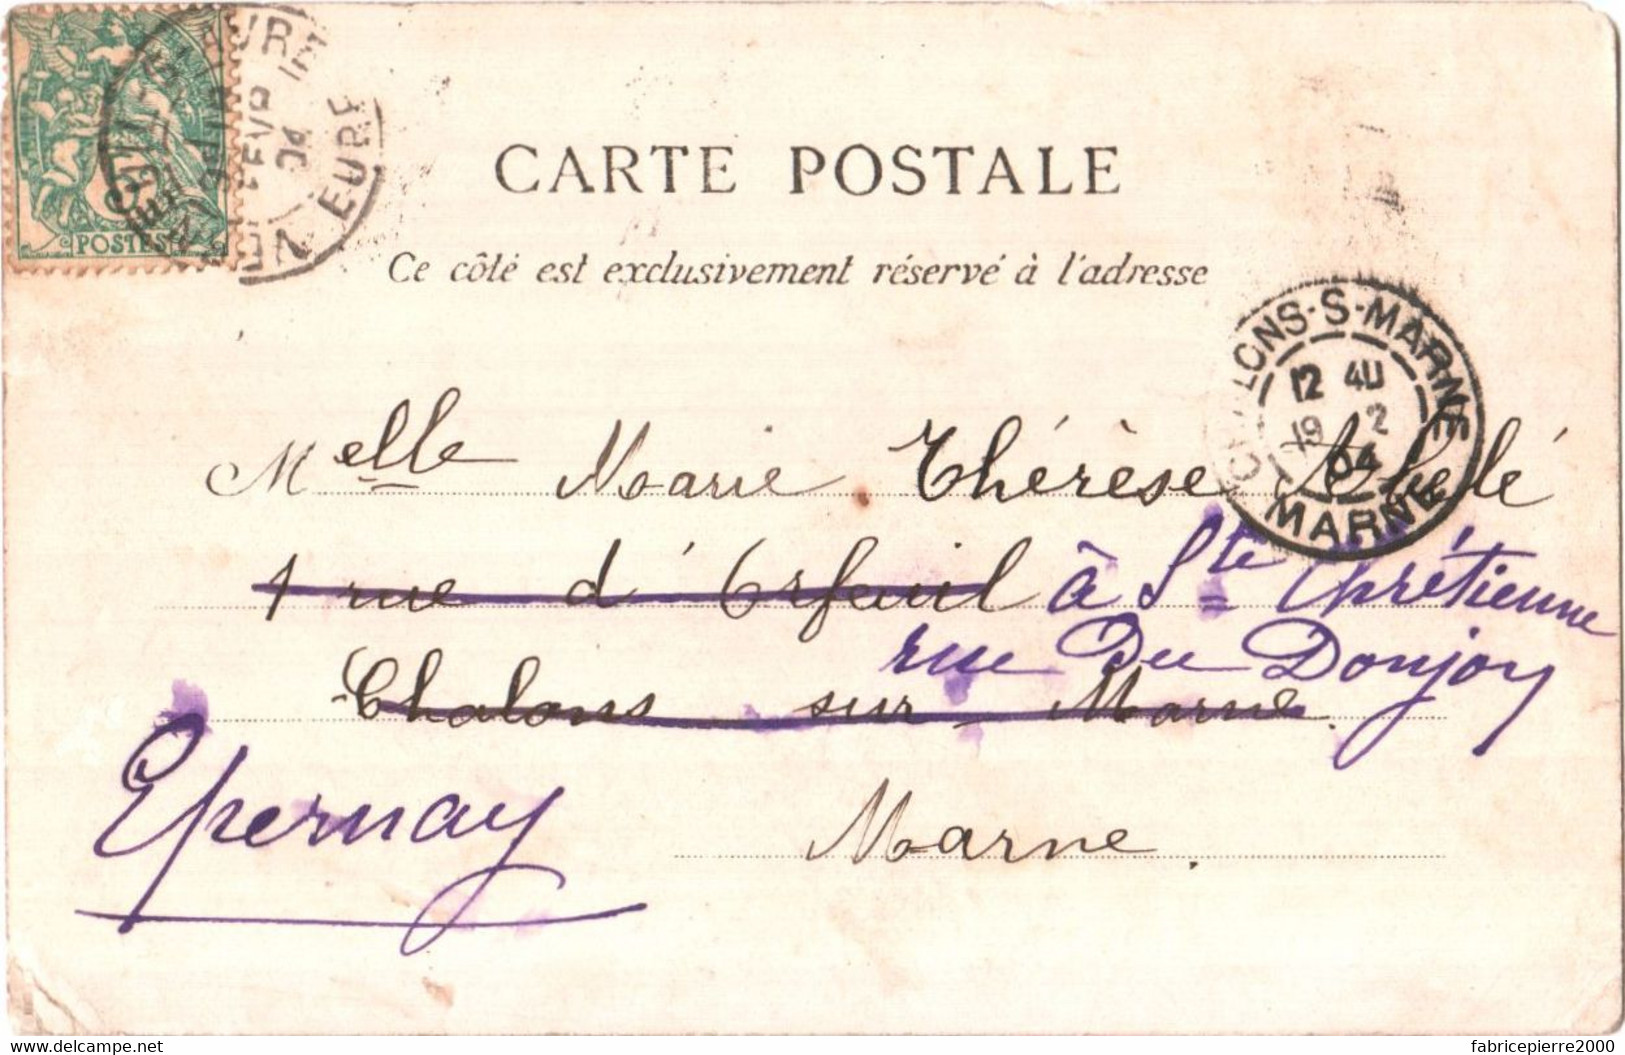 POSTES
EURE
CARTE POSTALE
Ce côté est exclusivement réservé à l'adresse
LONS-S-MARNE
12 4U
19 2
04
MARNE
Melle Marie Thérèse
1 rue d'Orfeuil à Ste Chrétienne
rue Du Donjon
Chalons sur Marne.
Epernay
Marne.
fabricepierre2000